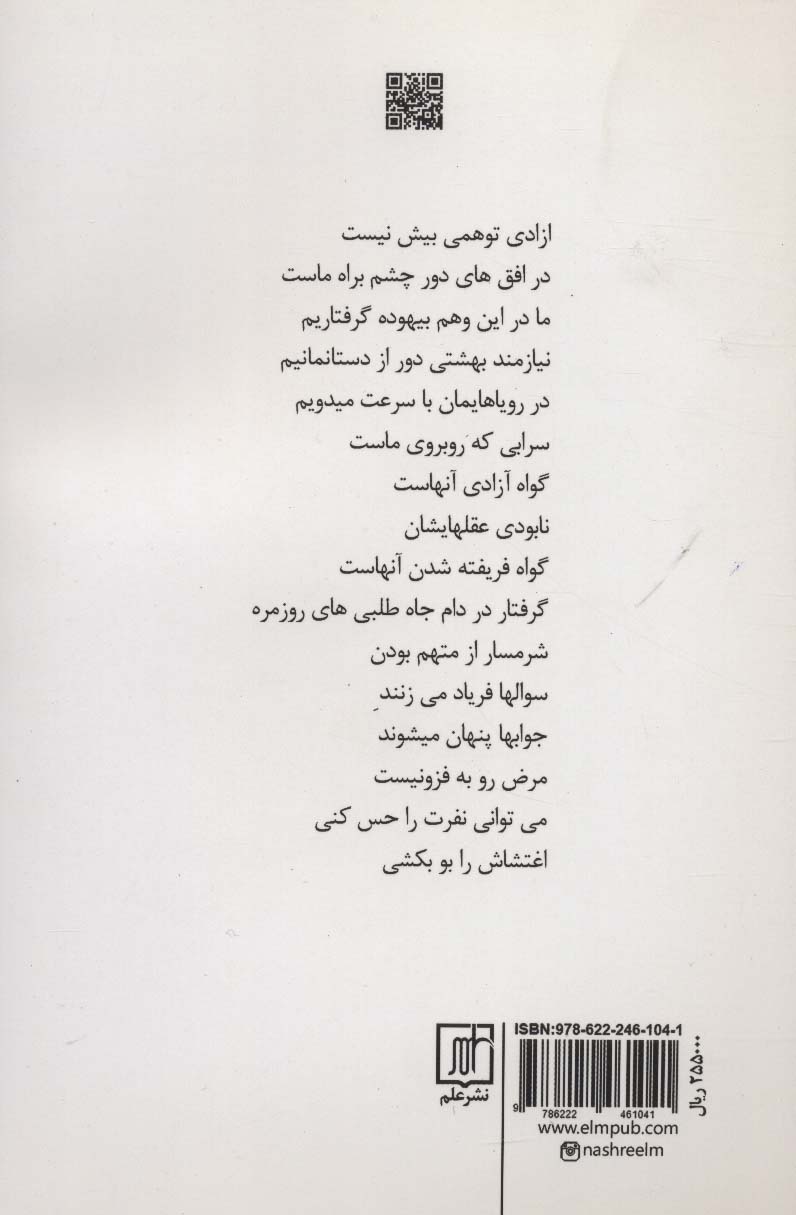 ازادی توهمی بیش نیست
در افق های دور چشم براه ماست
ما در این وهم بیهوده گرفتاریم
نیازمند بهشتی دور از دستانمانیم
در رویاهایمان با سرعت میدویم
سرابی که روبروی ماست
گواه آزادی آنهاست
نابودی عقلهایشان
گواه فریفته شدن آنهاست
گرفتار در دام جاه طلبی های روزمره
شرمسار از متهم بودن
سوالها فریاد می زنند
جوابها پنهان میشوند
مرض رو به فزونیست
می توانی نفرت را حس کنی
اغتشاش را بو بکشی
نشرعلم
ISBN:978-622-246-104-1
9 786222 461041
www.elmpub.com
nashreelm
۲۵۵۰۰۰ ریال